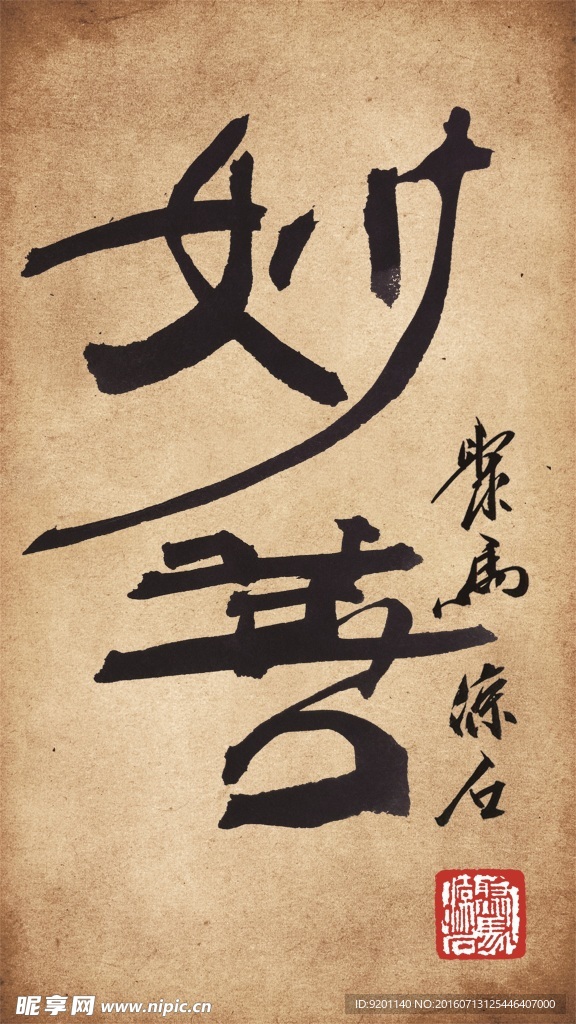 妙善
聚馬涼石
昵享网 www.nipic.cn
ID:9201140 NO:20160713125446407000